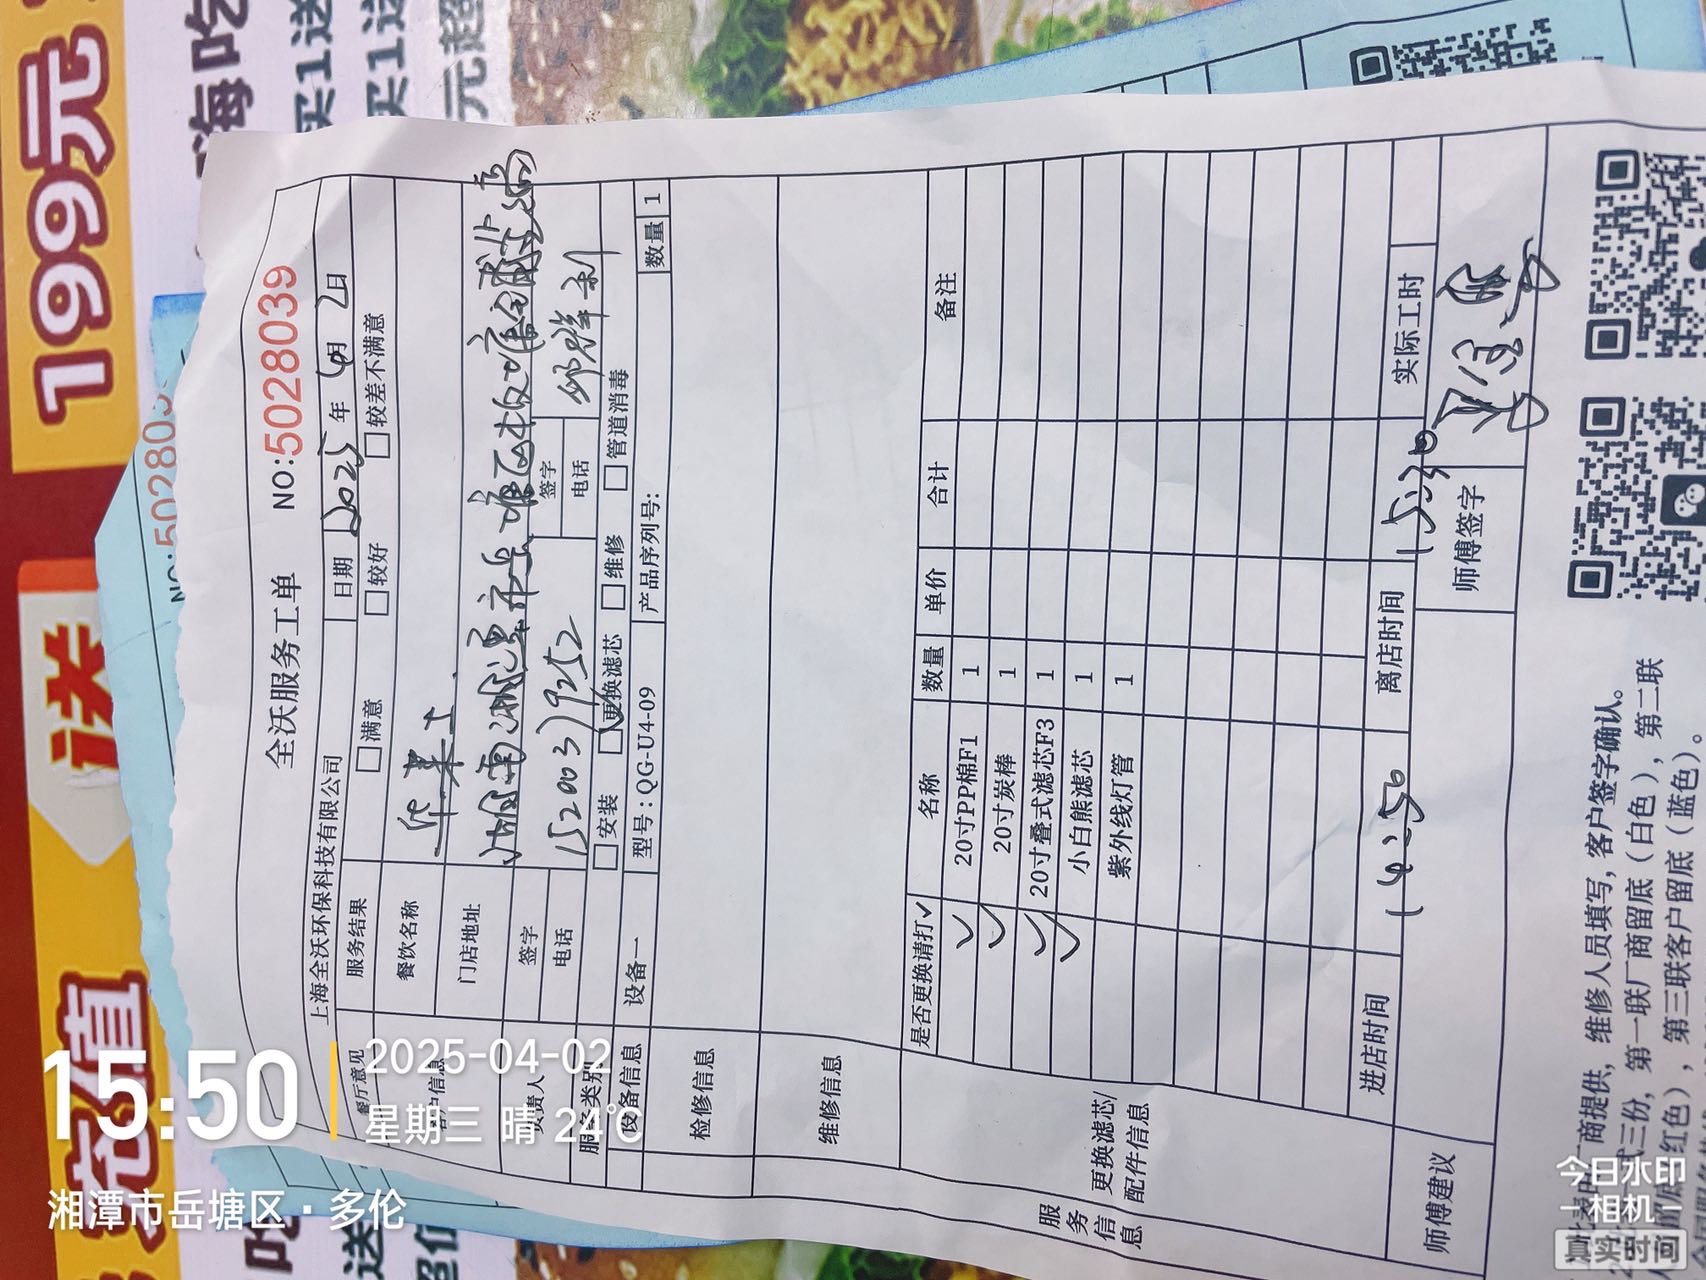 全沃服务工单
NO:5028039
上海全沃环保科技有限公司
日期 2025 年 4月 2日
餐厅意见 服务结果 □满意 □较好 □较差不满意
客户信息 餐饮名称 华莱士
门店地址 湖南湘潭市岳塘区板塘铺
负责人 签字 签字
电话 15200379252 电话
服务类别 □安装 ☑更换滤芯 □维修 □管道消毒
设备信息 设备一 型号:QG-U4-09 产品序列号: 数量 1
检修信息
维修信息
服务信息
更换滤芯/配件信息
是否更换请打✓ 名称 数量 单价 合计 备注
✓ 20寸PP棉F1 1
✓ 20寸炭棒 1
✓ 20寸叠式滤芯F3 1
✓ 小白熊滤芯 1
紫外线灯管 1
进店时间 14:50 离店时间 15:30 实际工时
师傅建议 师傅签字
商提供，维修人员填写，客户签字确认。
式三份，第一联厂商留底（白色），第二联
底（红色），第三联客户留底（蓝色）。
NO:502803
199元
送
充值
嗨吃
买1送
买1送
元超
吃
送
超值
15:50
2025-04-02
星期三 晴 24℃
湘潭市岳塘区·多伦
今日水印
相机
真实时间